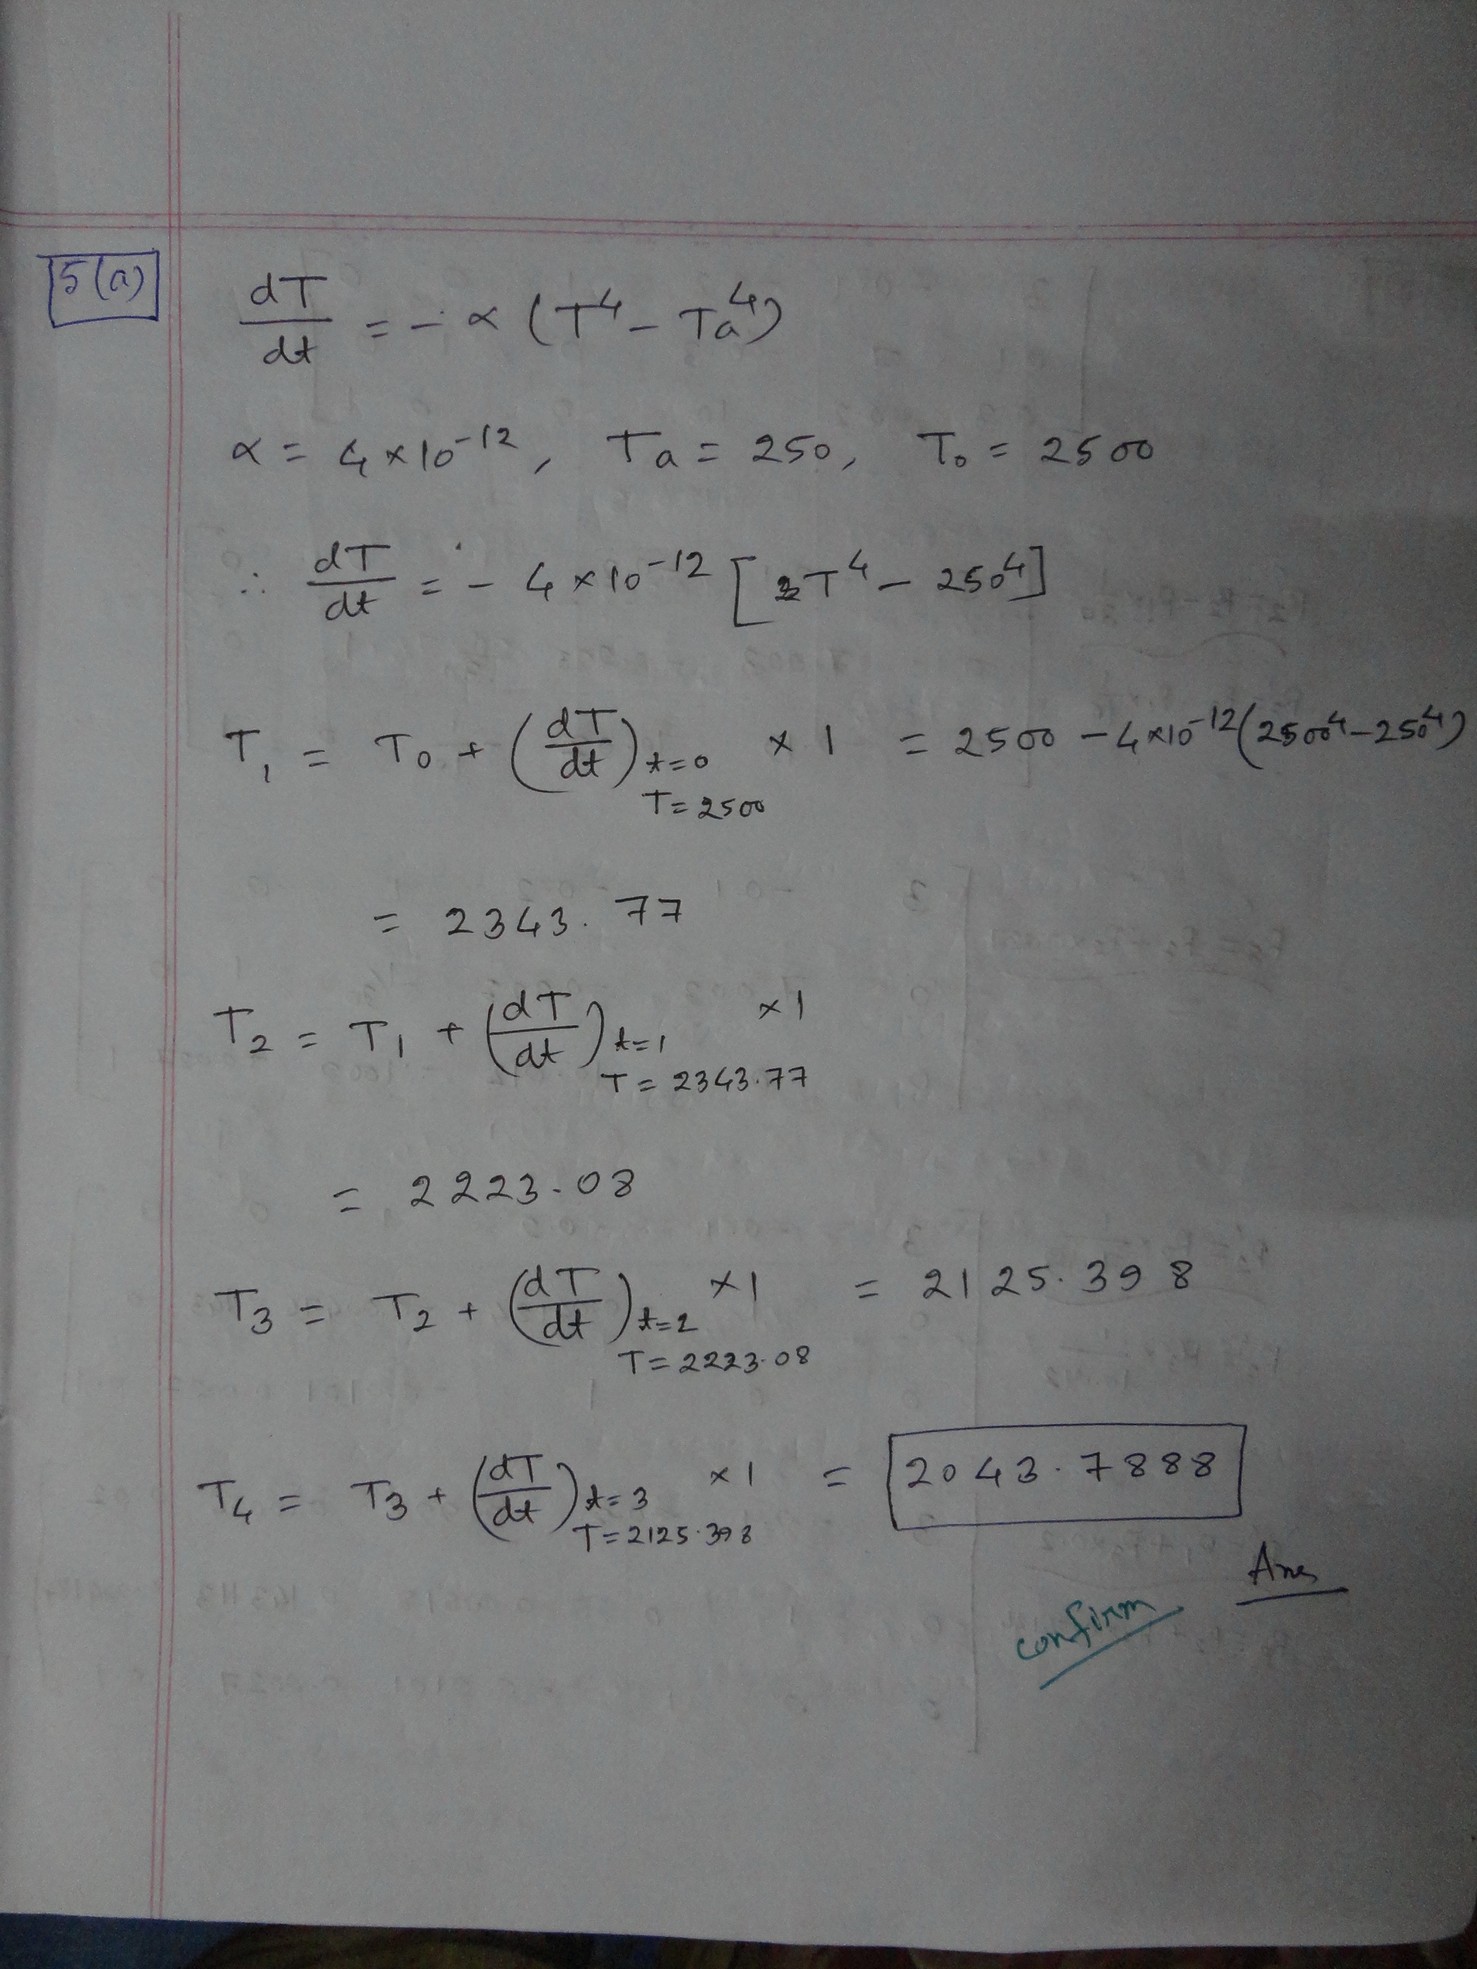 5(a)
dT/dt = - α (T⁴ - Ta⁴)
α = 4×10⁻¹², Ta = 250, T₀ = 2500
∴ dT/dt = - 4×10⁻¹² [T⁴ - 250⁴]
T₁ = T₀ + (dT/dt) t=0 T=2500 × 1 = 2500 - 4×10⁻¹²(2500⁴-250⁴)
= 2343.77
T₂ = T₁ + (dT/dt) t=1 T=2343.77 ×1
= 2223.08
T₃ = T₂ + (dT/dt) t=2 T=2223.08 ×1 = 2125.398
T₄ = T₃ + (dT/dt) t=3 T=2125.398 ×1 = 2043.7888
Ans
confirm